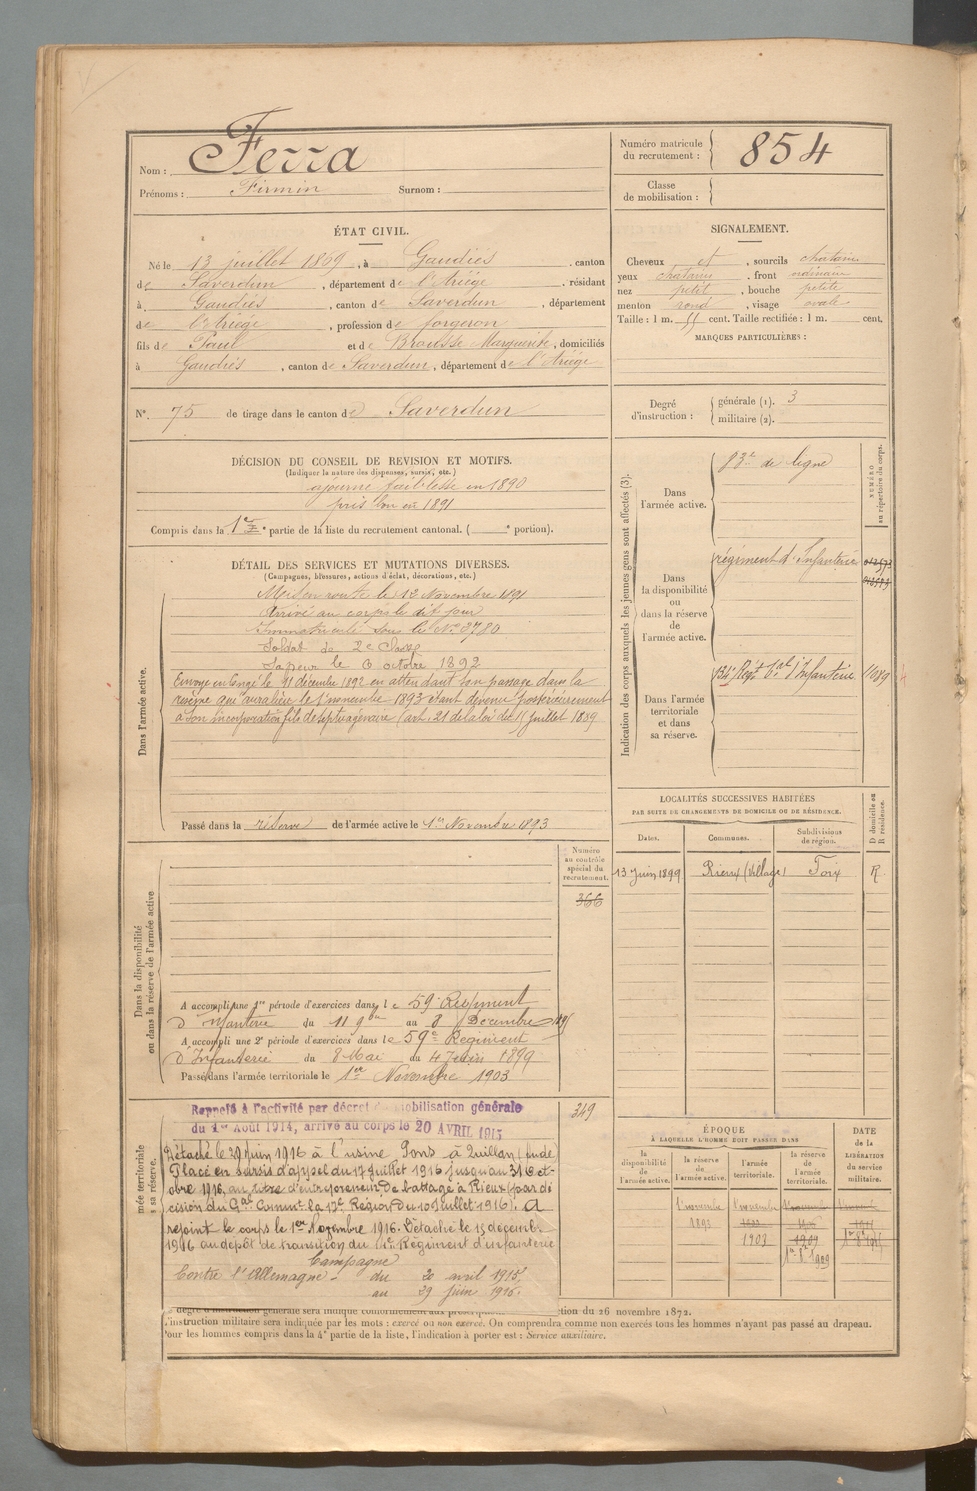 Nom : Ferra
Prénoms : Firmin Surnom :
Numéro matricule du recrutement : 854
Classe de mobilisation :
ÉTAT CIVIL.
Né le 13 juillet 1869, à Gaudiès, canton
de Saverdun, département de l'Ariège, résidant
à Gaudiès, canton de Saverdun, département
de l'Ariège, profession de forgeron
fils de Paul et de Brousse Marguerite, domiciliés
à Gaudiès, canton de Saverdun, département de l'Ariège
N°. 75 de tirage dans le canton de Saverdun
SIGNALEMENT.
Cheveux et, sourcils chatains
yeux chatains, front ordinaire
nez petit, bouche petite
menton rond, visage ovale
Taille : 1 m. 55 cent. Taille rectifiée : 1 m. cent.
MARQUES PARTICULIÈRES :
Degré d'instruction : générale (1). 3
militaire (2).
DÉCISION DU CONSEIL DE REVISION ET MOTIFS.
(Indiquer la nature des dispenses, sursis, etc.)
ajourné faiblesse en 1890
pris bon en 1891
Compris dans la 1re partie de la liste du recrutement cantonal. ( e portion).
DÉTAIL DES SERVICES ET MUTATIONS DIVERSES.
(Campagnes, blessures, actions d'éclat, décorations, etc.)
Dans l'armée active.
Mis en route le 12 Novembre 1891
Arrivé au corps le dit jour
Immatriculé sous le No 3780
Soldat de 2e Classe
Sapeur le 6 octobre 1892
Envoyé en Congé le 11 décembre 1892 en attendant son passage dans la
réserve qui aura lieu le 1er novembre 1893 étant devenu postérieurement
à son incorporation fils de septuagénaire (art. 21 de la loi du 15 juillet 1889
Passé dans la réserve de l'armée active le 1er Novembre 1893
Indication des corps auxquels les jeunes gens sont affectés (3).
NUMÉRO au répertoire du corps.
Dans l'armée active.
83e de ligne
Dans la disponibilité ou dans la réserve de l'armée active.
régiment d'Infanterie
Dans l'armée territoriale et dans sa réserve.
134e Régt Tal d'Infanterie 1089
LOCALITÉS SUCCESSIVES HABITÉES
PAR SUITE DE CHANGEMENTS DE DOMICILE OU DE RÉSIDENCE.
Dates. Communes. Subdivisions de région. D domicile ou R résidence.
13 Juin 1899 Rieux (Village) Foix R
Numéro au contrôle spécial du recrutement.
366
Dans la disponibilité ou dans la réserve de l'armée active
A accompli une 1re période d'exercices dans le 59e Régiment
d'Infanterie du 11 9bre au 8 Décembre
A accompli une 2e période d'exercices dans le 59e Régiment
d'Infanterie du 8 Mai au 4 Juin 1899
Passé dans l'armée territoriale le 1er Novembre 1903
349
mée territoriale
sa réserve.
Rappelé à l'activité par décret de mobilisation générale
du 1er Août 1914, arrivé au corps le 20 AVRIL 1915
Détaché le 29 juin 1916 à l'usine Pons à Quillan (Aude)
Placé en sursis d'appel du 17 Juillet 1916 jusqu'au 31 Oct-
obre 1916, au titre d'entrepreneur de battage à Rieux (par dé
cision du Gal Commt la 17e Région du 10 Juillet 1916). A
rejoint le corps le 1er Novembre 1916. Détaché le 15 décembre
1916 au dépôt de transition du Régiment d'infanterie
Campagne
Contre l'Allemagne - du 20 avril 1915
au 29 juin 1916.
ÉPOQUE
À LAQUELLE L'HOMME DOIT PASSER DANS
la disponibilité de l'armée active.
la réserve de l'armée active.
l'armée territoriale.
la réserve de l'armée territoriale.
DATE de la LIBÉRATION du service militaire.
1 novembre 1893
1 novembre 1903
1909
1er 8bre 1909
tion du 26 novembre 1872.
L'instruction militaire sera indiquée par les mots : exercé ou non exercé. On comprendra comme non exercés tous les hommes n'ayant pas passé au drapeau.
Pour les hommes compris dans la 4e partie de la liste, l'indication à porter est : Service auxiliaire.